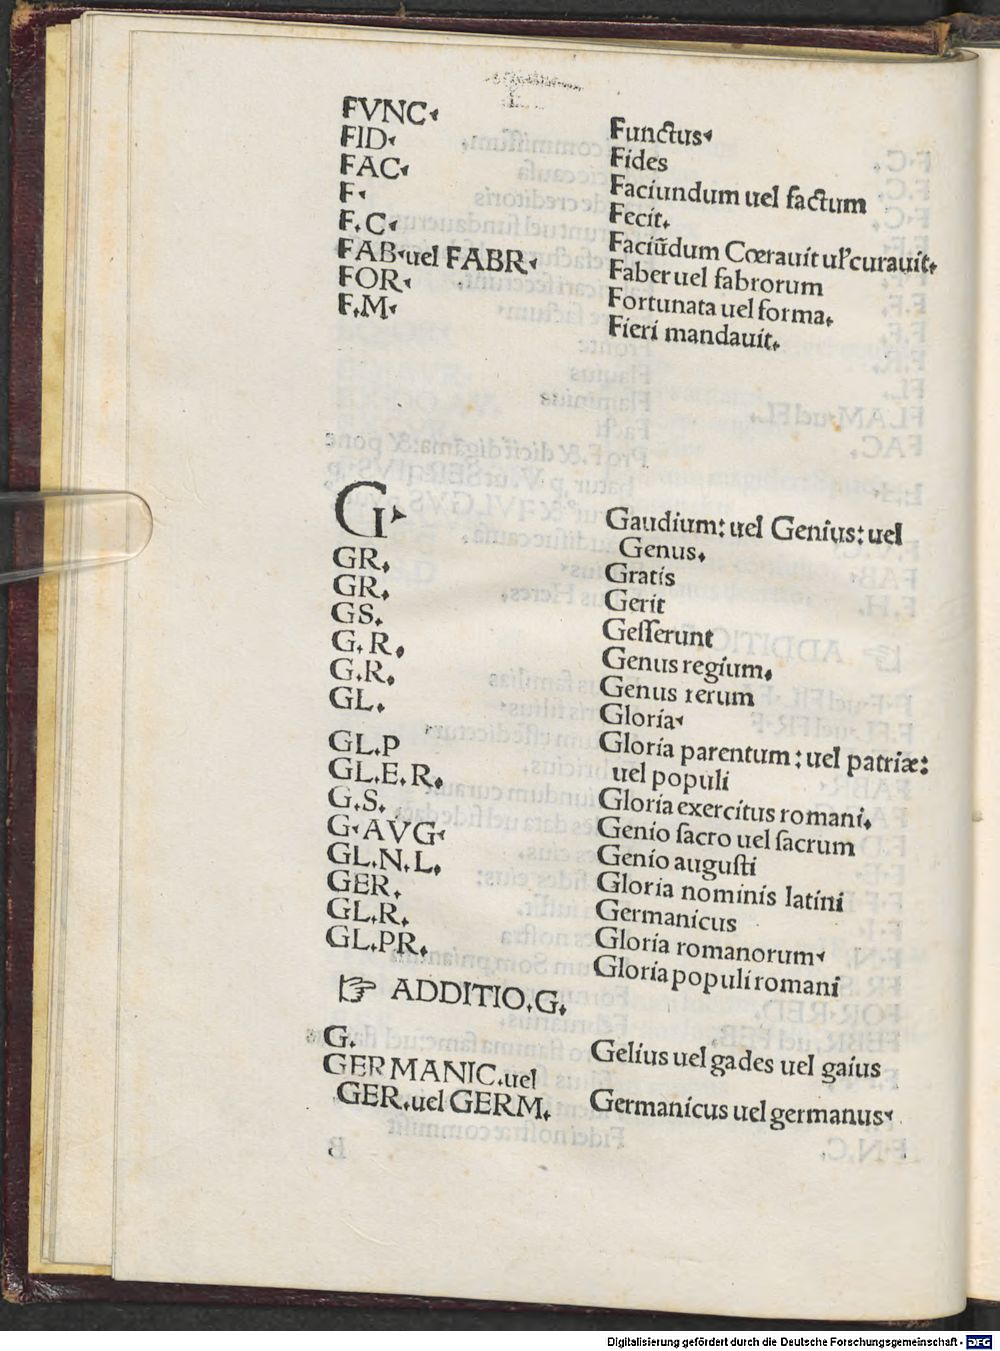 FVNC. Functus.
FID. Fides
FAC. Faciundum uel factum
F. Fecit.
F.C. Faciūdum Cœrauit ul' curauit.
FAB. uel FABR. Faber uel fabrorum
FOR. Fortunata uel forma.
F.M. Fieri mandauit.
G. Gaudium: uel Genius: uel
Genus.
GR. Gratis
GR. Gerit
GS. Gesserunt
G.R. Genus regium.
G.R. Genus rerum
GL. Gloria.
GL.P Gloria parentum: uel patriæ:
uel populi
GL.E.R. Gloria exercitus romani.
G.S. Genio sacro uel sacrum
G.AVG. Genio augusti
GL.N.L. Gloria nominis latini
GER. Germanicus
GL.R. Gloria romanorum.
GL.PR. Gloria populi romani
☞ ADDITIO.G.
G. Gelius uel gades uel gaius
GERMANIC.uel
GER.uel GERM. Germanicus uel germanus.
Digitalisierung gefördert durch die Deutsche Forschungsgemeinschaft - DFG